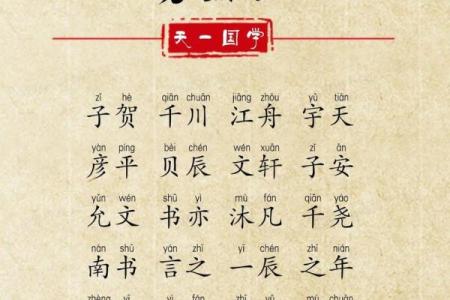 天一国学
zǐ hè qiān chuān jiāng zhōu yǔ tiān
子贺 千川 江舟 宇天
yàn píng bèi chén wén xuān zǐ ān
彦平 贝辰 文轩 子安
yǔn wén shū yì mù fán qiān yáo
允文 书亦 沐凡 千尧
nán shū yán zhī yī chén zhī nián
南书 言之 一辰 之年